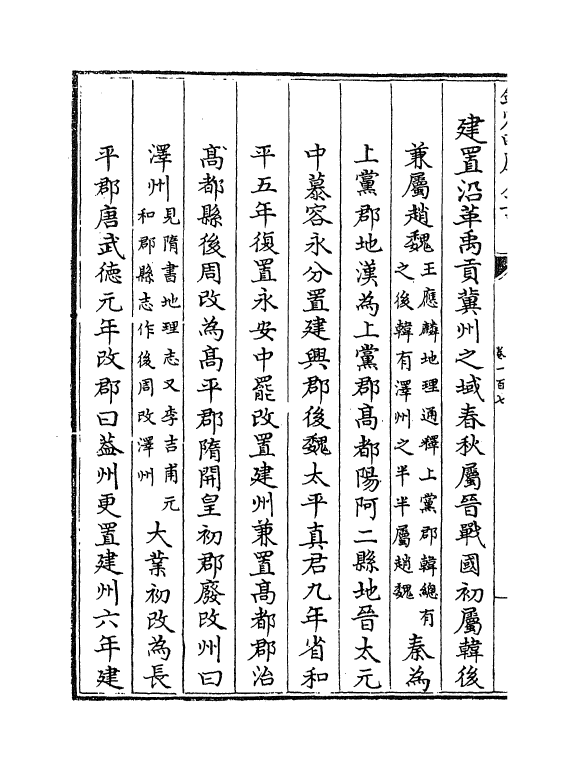 卷一百七
建置沿革禹貢冀州之域春秋屬晉戰國初屬韓後
兼屬趙魏王應麟地理通釋上黨郡韓總有之後韓有澤州之半半屬趙魏秦為
上黨郡地漢為上黨郡高都陽阿二縣地晉太元
中慕容永分置建興郡後魏太平真君九年省和
平五年復置永安中罷改置建州兼置高都郡治
高都縣後周改為高平郡隋開皇初郡廢改州曰
澤州見隋書地理志又李吉甫元和郡縣志作後周改澤州大業初改為長
平郡唐武德元年改郡曰蓋州更置建州六年建